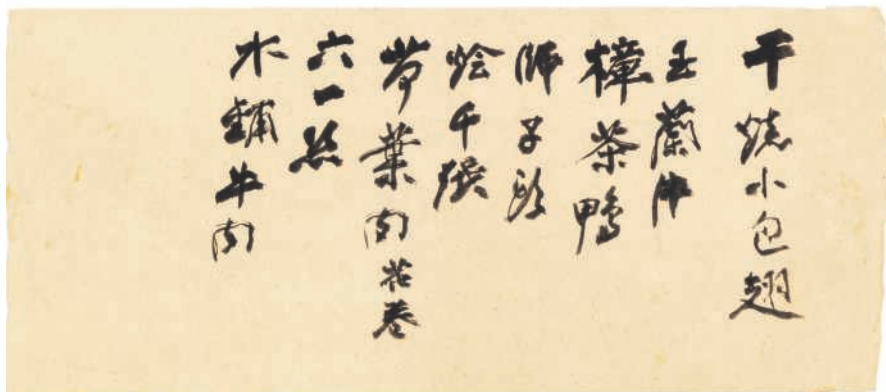 干燒小包翅
玉蘭片
樟茶鴨
師子頭
燴千張
荷葉肉花卷
六一絲
水鋪牛肉